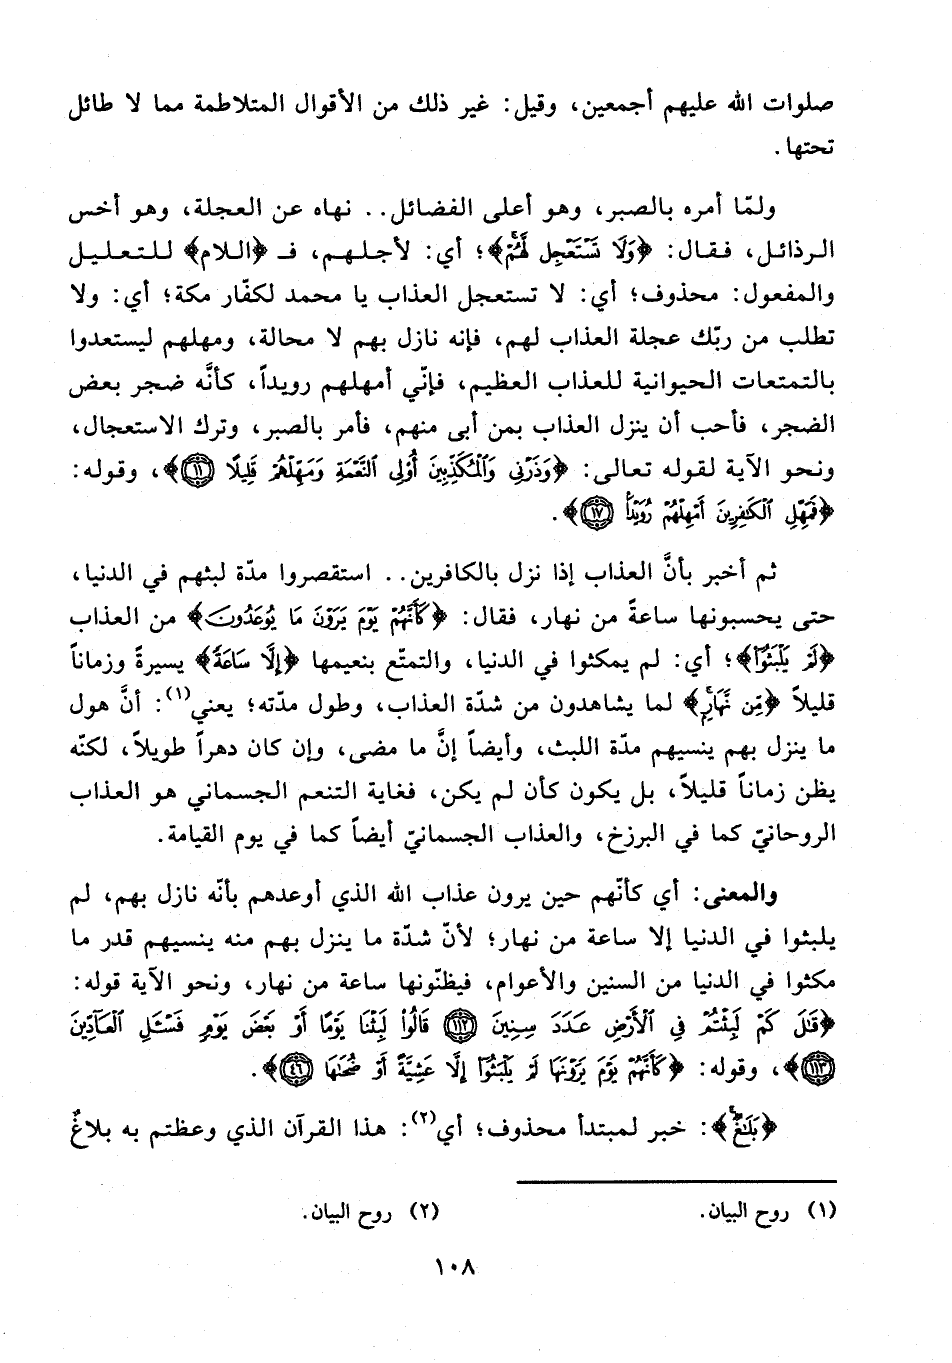 صلوات الله عليهم أجمعين، وقيل: غير ذلك من الأقوال المتلاطمة مما لا طائل
تحتها.
ولمّا أمره بالصبر، وهو أعلى الفضائل.. نهاه عن العجلة، وهو أخس
الرذائل، فقال: ﴿وَلَا تَسْتَعْجِل لَّهُمْ﴾؛ أي: لأجلهم، فـ ﴿اللام﴾ للتعليل
والمفعول: محذوف؛ أي: لا تستعجل العذاب يا محمد لكفّار مكة؛ أي: ولا
تطلب من ربّك عجلة العذاب لهم، فإنه نازل بهم لا محالة، ومهلهم ليستعدوا
بالتمتعات الحيوانية للعذاب العظيم، فإنّي أمهلهم رويداً، كأنَّه ضجر بعض
الضجر، فأحب أن ينزل العذاب بمن أبى منهم، فأمر بالصبر، وترك الاستعجال،
ونحو الآية لقوله تعالى: ﴿وَذَرْنِي وَالْمُكَذِّبِينَ أُوْلِي النَّعْمَةِ وَمَهِّلْهُمْ قَلِيلًا ١١﴾، وقوله:
﴿فَمَهِّلِ الْكَافِرِينَ أَمْهِلْهُمْ رُوَيْدًا ١٧﴾.
ثم أخبر بأنَّ العذاب إذا نزل بالكافرين.. استقصروا مدّة لبثهم في الدنيا،
حتى يحسبونها ساعةً من نهار، فقال: ﴿كَأَنَّهُمْ يَوْمَ يَرَوْنَ مَا يُوعَدُونَ﴾ من العذاب
﴿لَمْ يَلْبَثُوا﴾؛ أي: لم يمكثوا في الدنيا، والتمتّع بنعيمها ﴿إِلَّا سَاعَةً﴾ يسيرةً وزماناً
قليلاً ﴿مِّن نَّهَارٍ﴾ لما يشاهدون من شدّة العذاب، وطول مدّته؛ يعني(١): أنَّ هول
ما ينزل بهم ينسيهم مدّة اللبث، وأيضاً إنَّ ما مضى، وإن كان دهراً طويلاً، لكنّه
يظن زماناً قليلاً، بل يكون كأن لم يكن، فغاية التنعم الجسماني هو العذاب
الروحانيّ كما في البرزخ، والعذاب الجسمانيّ أيضاً كما في يوم القيامة.
والمعنى: أي كأنّهم حين يرون عذاب الله الذي أوعدهم بأنّه نازل بهم، لم
يلبثوا في الدنيا إلا ساعة من نهار؛ لأنّ شدّة ما ينزل بهم منه ينسيهم قدر ما
مكثوا في الدنيا من السنين والأعوام، فيظنّونها ساعة من نهار، ونحو الآية قوله:
﴿قَالَ كَمْ لَبِثْتُمْ فِي الْأَرْضِ عَدَدَ سِنِينَ ١١٢ قَالُوا لَبِثْنَا يَوْمًا أَوْ بَعْضَ يَوْمٍ فَسْئَلِ الْعَادِّينَ
١١٣﴾، وقوله: ﴿كَأَنَّهُمْ يَوْمَ يَرَوْنَهَا لَمْ يَلْبَثُوا إِلَّا عَشِيَّةً أَوْ ضُحَاهَا ٤٦﴾.
﴿بَلَاغٌ﴾: خبر لمبتدأ محذوف؛ أي(٢): هذا القرآن الذي وعظتم به بلاغٌ
(١) روح البيان. (٢) روح البيان.
١٠٨